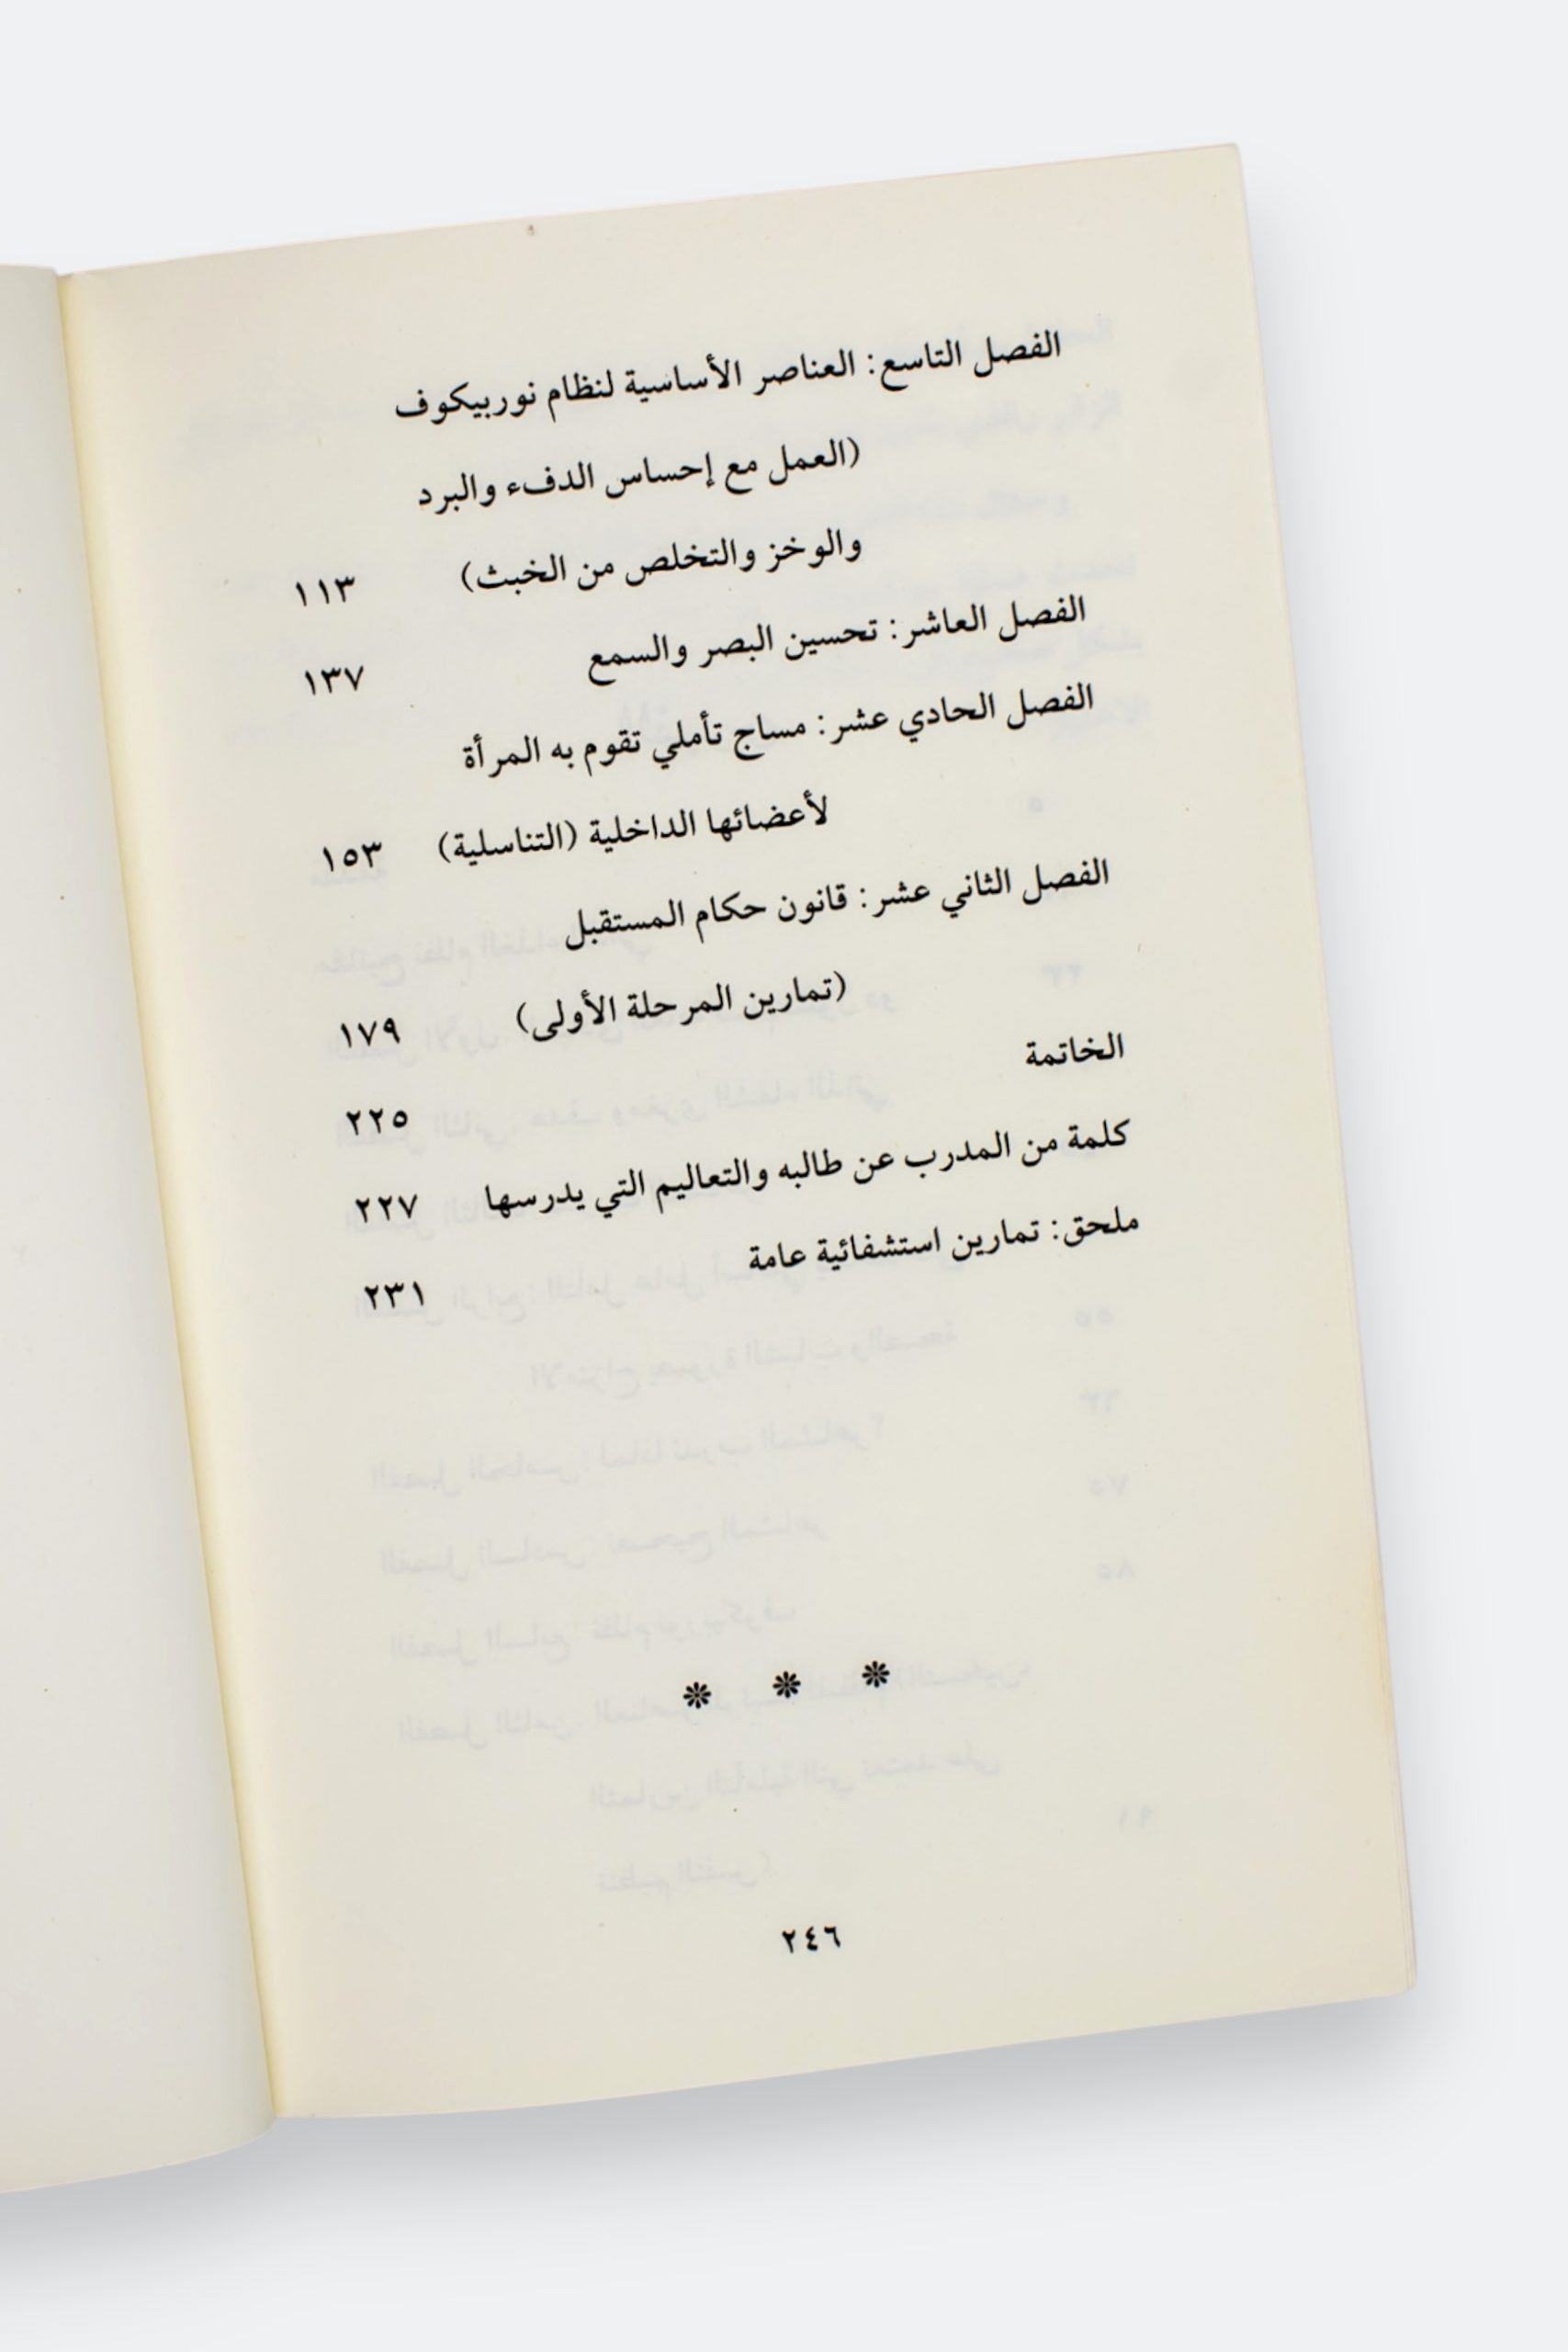 الفصل التاسع: العناصر الأساسية لنظام نوربيكوف
(العمل مع إحساس الدفء والبرد
والوخز والتخلص من الخبث) ١١٣
الفصل العاشر: تحسين البصر والسمع ١٣٧
الفصل الحادي عشر: مساج تأملي تقوم به المرأة
لأعضائها الداخلية (التناسلية) ١٥٣
الفصل الثاني عشر: قانون حكام المستقبل
(تمارين المرحلة الأولى) ١٧٩
الخاتمة ٢٢٥
كلمة من المدرب عن طالبه والتعاليم التي يدرسها ٢٢٧
ملحق: تمارين استشفائية عامة ٢٣١
❊ ❊ ❊
٢٤٦